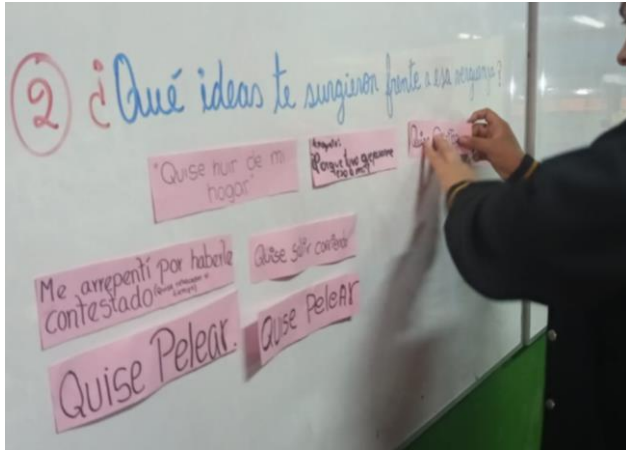 2 ¿Qué ideas te surgieron frente a esa verguenza?
"Quise huir de mi
hogar"
Porque
Quise
Me arrepentí por haberle
contestado
Quise salir corriendo
Quise Pelear.
Quise PeleAr